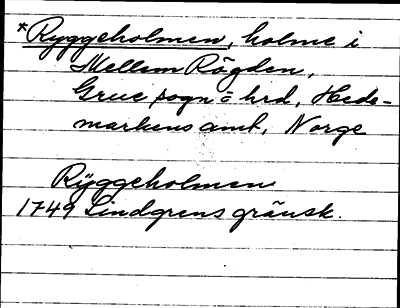 *Ryggeholmen, holme i
Mellem Rögden,
Grue sogn = hrd, Hede-
markens amt, Norge
Rÿggeholmen
1749 Lindgrens gränsk.